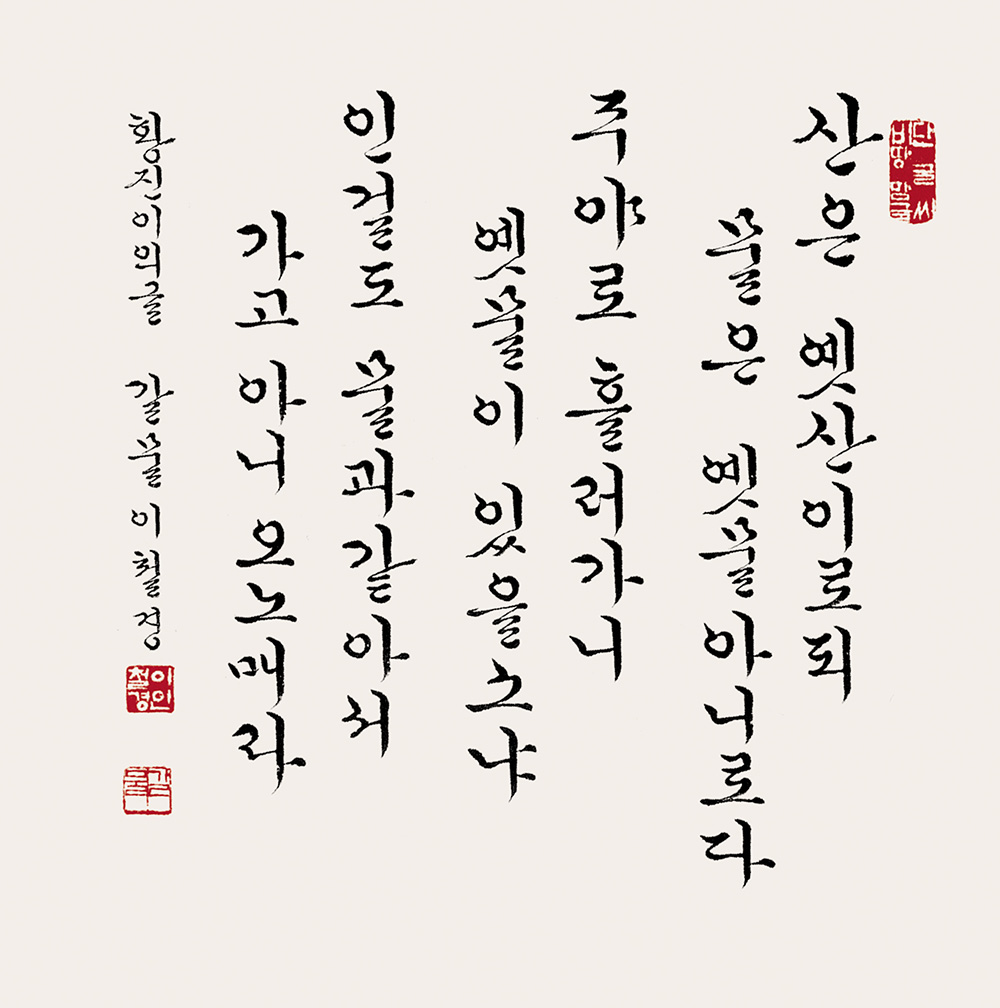 산은 옛산이로되
물은 옛물아니로다
주야로 흘러가니
옛물이 있을소냐
인걸도 물과같아서
가고 아니오노매라
황진이의글 갈물 이철경
이인
철경
갈물